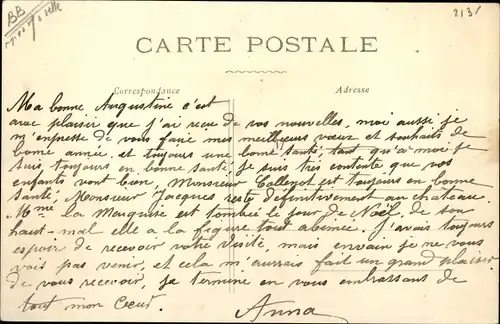 BB
2131
CARTE POSTALE
Correspondance
Adresse
Ma bonne Augustine c'est
avec plaisir que j'ai recu de vos nouvelles, moi aussi je
m'enpresse de vous faire mes meilleurs vœux et souhaits de
bonne année, et toujours une bonne santé, tant qu'a moi je
suis toujours en bonne santé, je suis très contente que vos
enfants vont bien, Monsieur est toujours en bonne
santé, Monsieur Jacques reste définitivement au chateau.
Mme la Marquise est tombée le jour de Noël, de son
haut-mal elle a la figure tout abimée. J'avais toujours
espoir de recevoir votre visite, mais envain je ne vous
vois pas venir, et cela m'aurais fait un grand plaisir
de vous recevoir, je termine en vous embrassant de
tout mon Cœur.
Anna